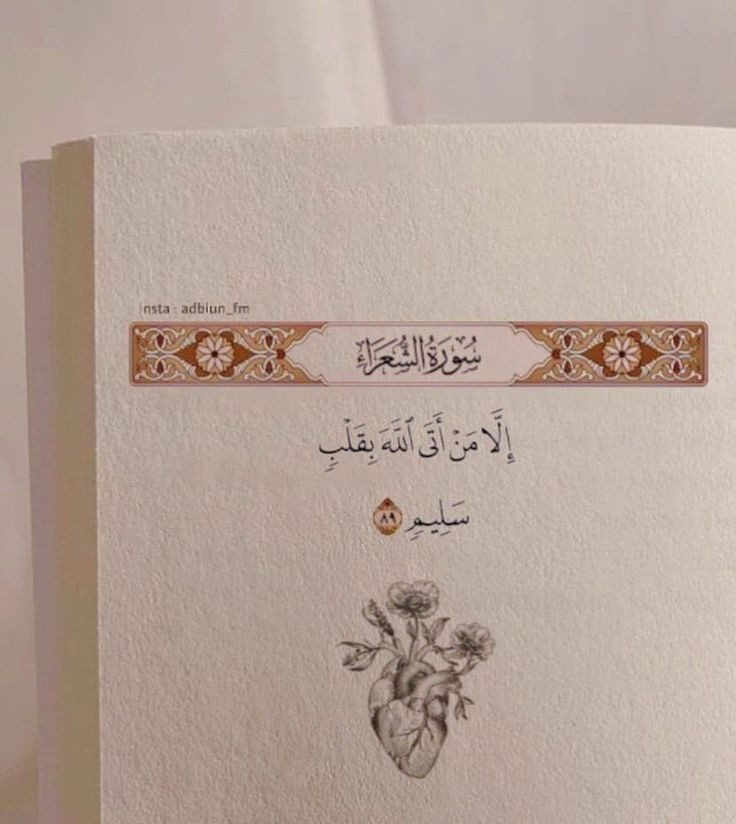 insta : adbiun_fm
سُورَةُ الشُّعَرَاءِ
إِلَّا مَنْ أَتَى ٱللَّهَ بِقَلْبٍ
سَلِيمٍ ٨٩